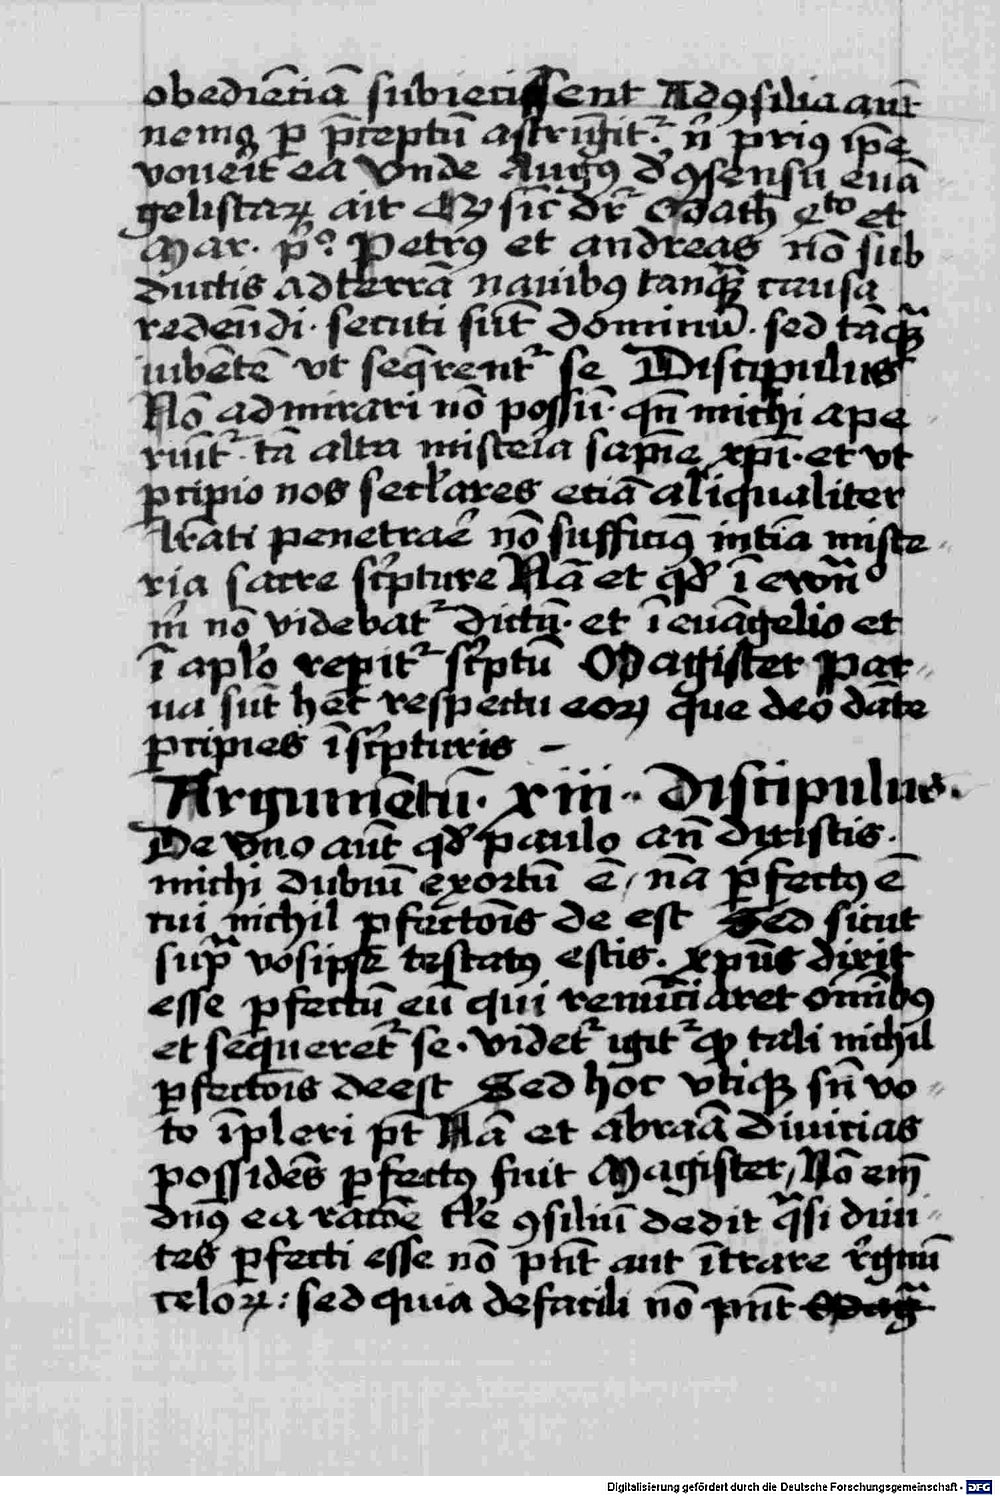 obediēciā subiecissent Ad ꝯsilia aūt
nemoꝫ ꝑ p̄ceptū astrīgit᷑ · n̄ prius ip̄e
voueīt ea Vnde Augꝰ de ꝯsensu euā
gelistaꝝ ait sic̄ dr̄ Math̄ qͣto et
Mar · pͦ? Petrꝰ et andreas nō sub
ductis ad terrā nauibꝰ tanqͣꝫ causa
redeūdi · secuti sūt dominū · sed tāqͣꝫ
iubētē vt seq̄rent᷑ se Discipulus
Nō admirari nō possū · qn̄ michi ape
riūt᷑ · tā alta misteīa sapīe xp̄i · et vt
ꝑcipio nos secl̓ares eciā aliqualiter
lr̄ati penetraē nō sufficiꝰ intīa miste
ria sacre sc̓pture Nā et qd̓ ī
m̄ nō videbat᷑ dictū · et ī euāgelio et
ī apl̓o reꝑit᷑ sc̓ptū Magister Par
ua sūt hec respectu eoꝝ que deo dāte
ꝑcipies ī sc̓pturis –
Argumētū · xiii · Discipulus ·
De vno aūt qd̓ paulo an̄ dixistis ·
michi dubiū exortū ē / nā ꝑfectꝰ ē
cui nichil ꝑfectōis de est Sed sicut
supͣ vosip̄e testatꝰ estis · xp̄us dixit
esse ꝑfectū eū qui renūciaret om̄ibꝰ
et sequeret᷑ se · videt᷑ igit᷑ ꝙ tali nichil
ꝑfectōis deest Sed hoc vtiqꝫ sn̄ vo
to īpleri pt̄ Nā et abraā diuicias
possidēs ꝑfectꝰ fuit Magister / Nō em̄
dn̄ꝰ ea racōe ꝯsiliū dedit qͣsi diui
tes ꝑfecti esse nō pn̄t aut ītrare r̓gnū
celoꝝ : sed quia de facili nō pn̄t
Digitalisierung gefördert durch die Deutsche Forschungsgemeinschaft - DFG